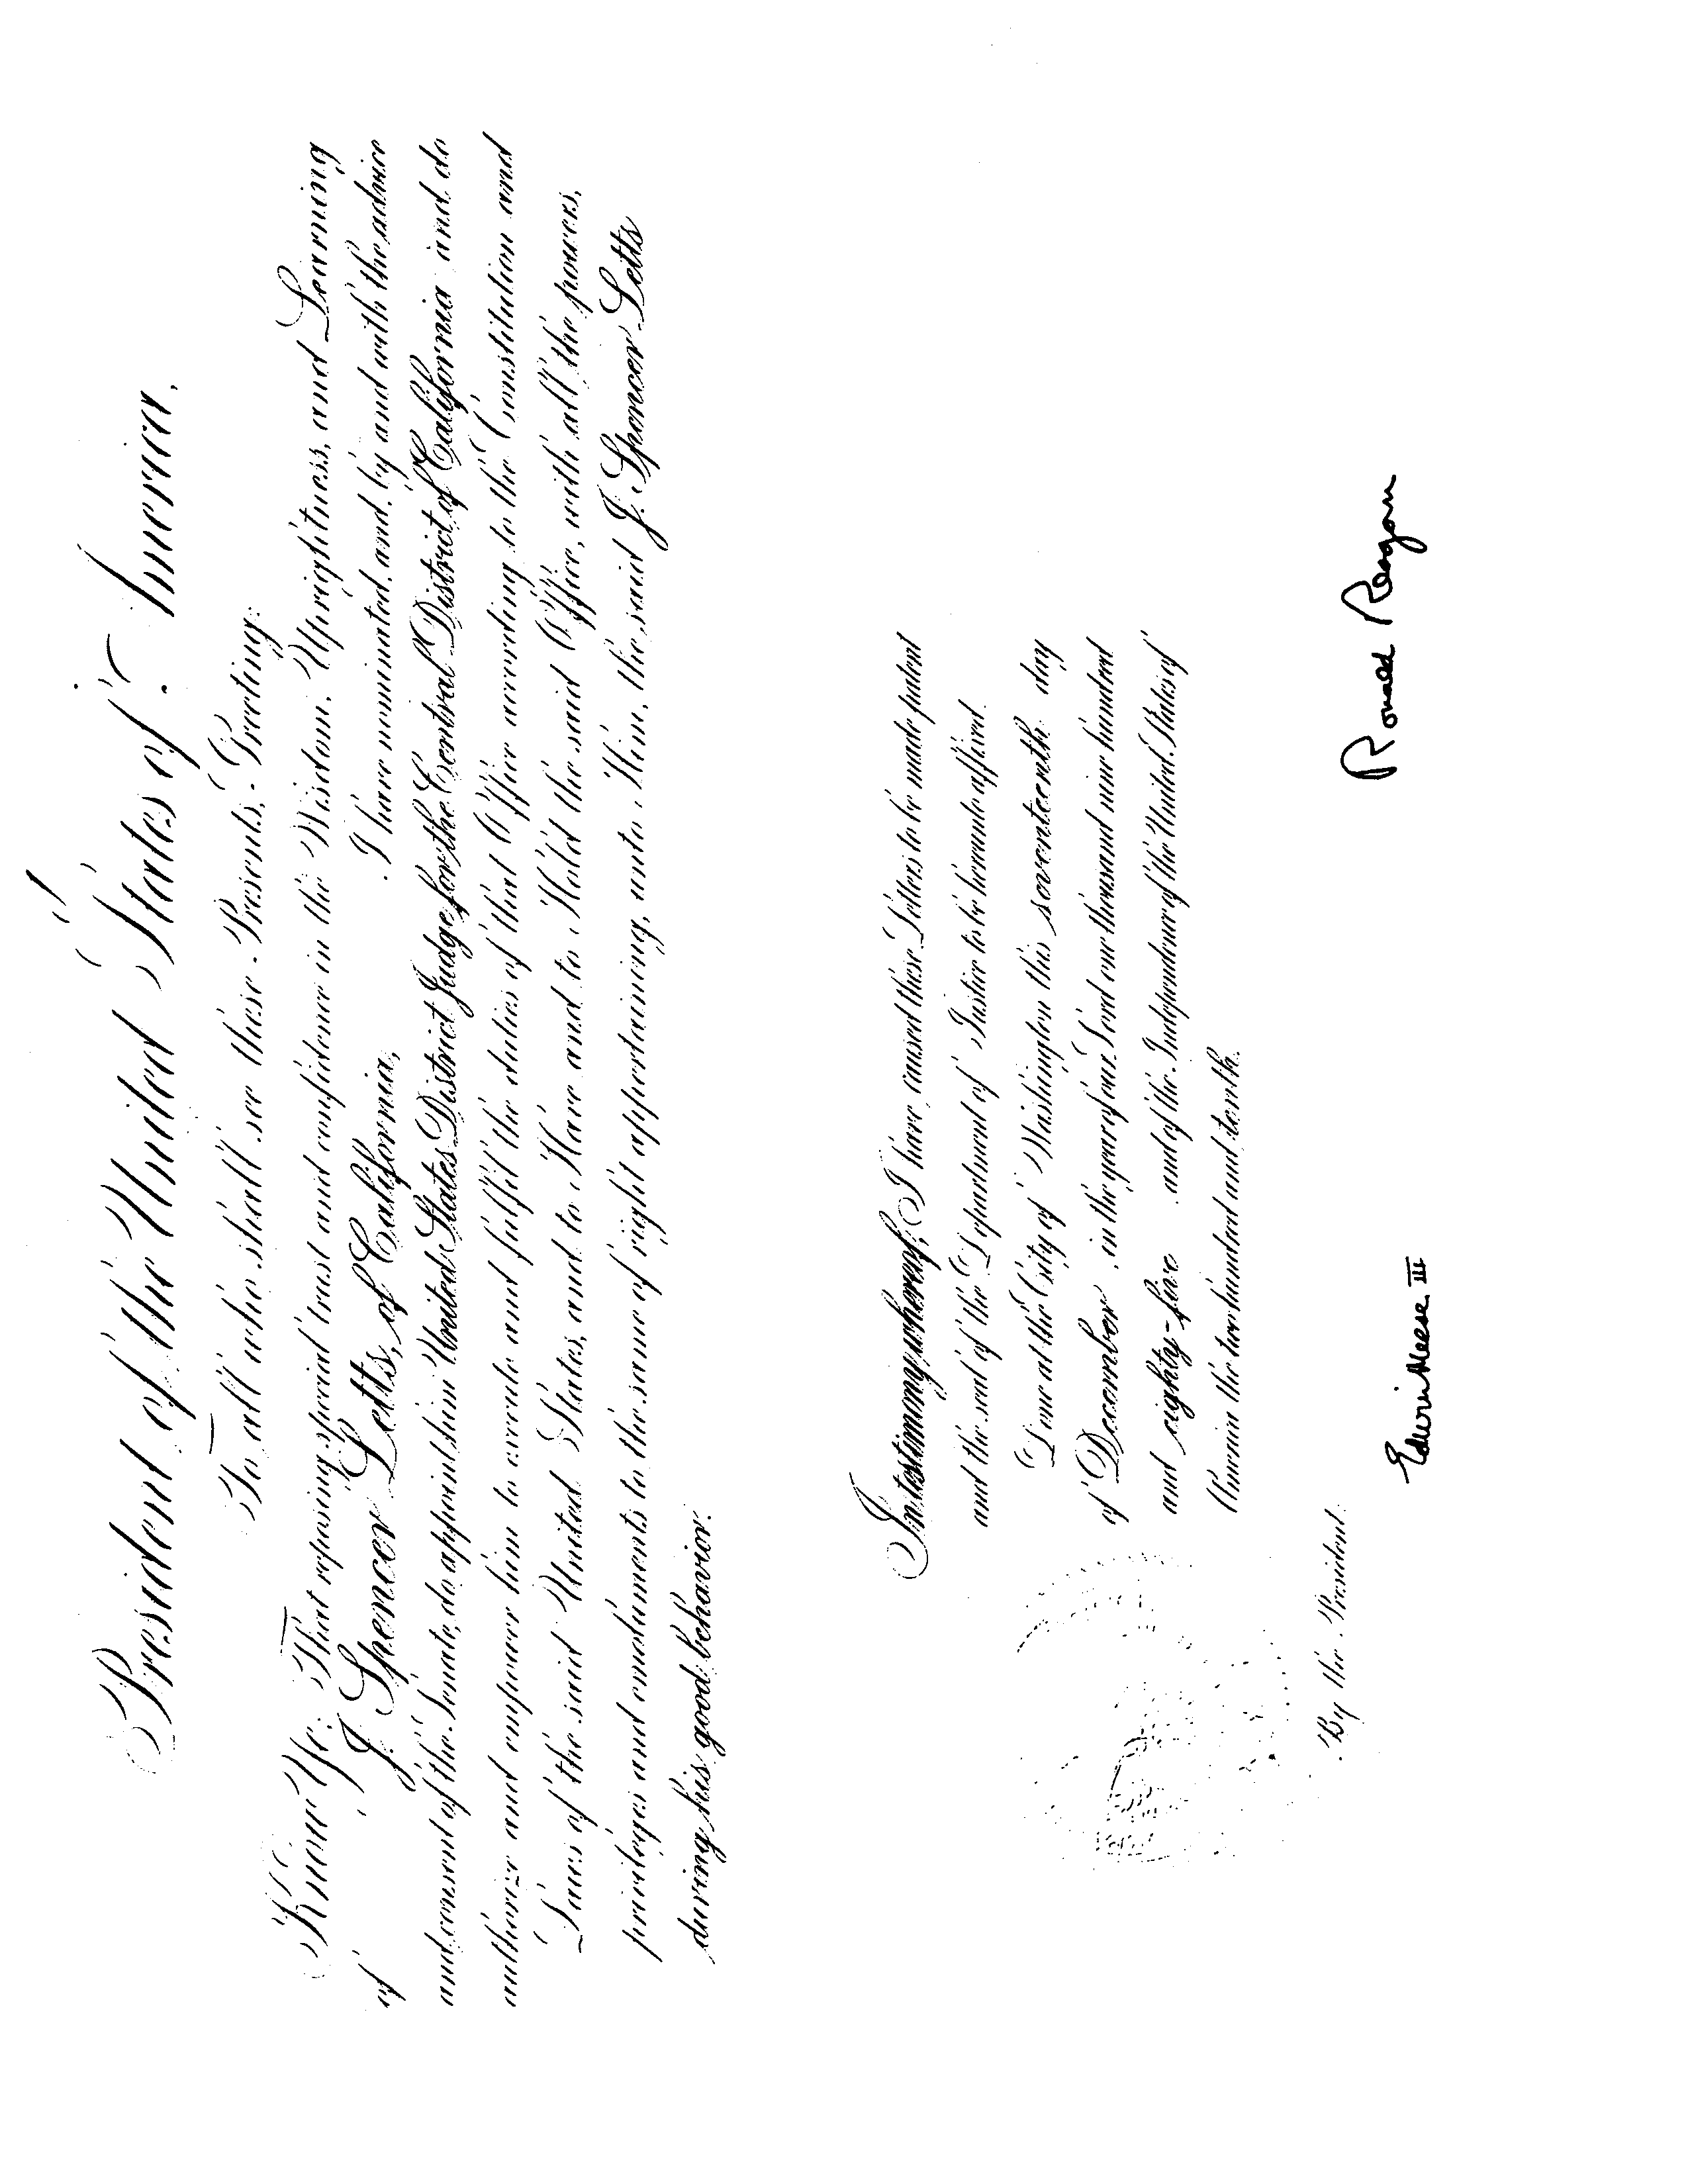 President of the United States of America.
To all who shall see these Presents, Greeting:
Know Ye; That reposing special trust and confidence in the Wisdom, Uprightness, and Learning
of J. Spencer Letts, of California, I have nominated, and, by and with the advice
and consent of the Senate, do appoint him United States District Judge for the Central District of California and do
authorize and empower him to execute and fulfil the duties of that Office according to the Constitution and
Laws of the said United States, and to Have and to Hold the said Office, with all the powers,
privileges and emoluments to the same of right appertaining, unto Him, the said J. Spencer Letts
during his good behavior.
In testimony whereof, I have caused these Letters to be made patent
and the seal of the Department of Justice to be hereunto affixed.
Done at the City of Washington this seventeenth day
of December, in the year of our Lord one thousand nine hundred
and eighty-five and of the Independence of the United States of
America the two hundred and tenth.
By the President:
Ronald Reagan
Edwin Meese III